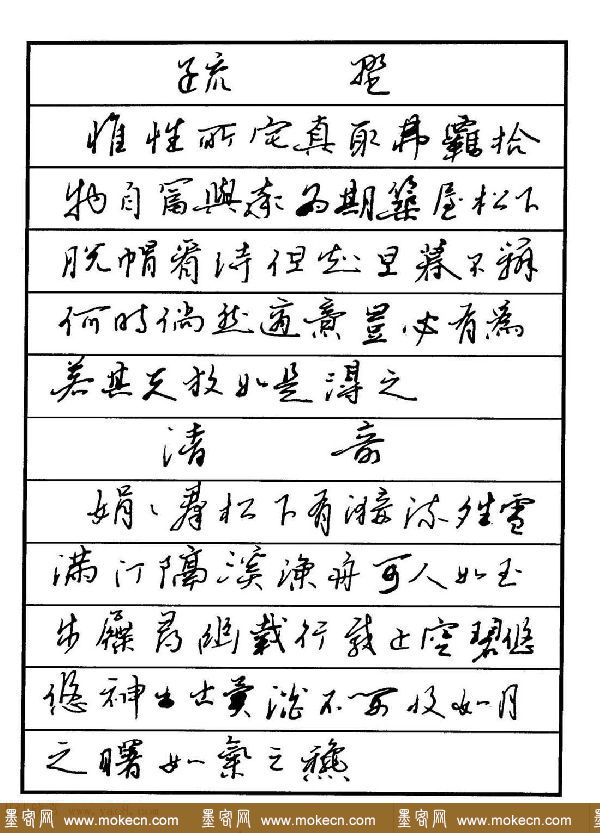 疏 野
惟性所宅真取弗羈拾
物自富與率為期築屋松下
脱帽看诗但知旦暮不辨
何時倘然適意豈必有為
若其天放如是得之
清 奇
娟〻羣松下有漪流晴雪
滿汀隔溪漁舟可人如玉
步屧尋幽載行載止空碧悠
悠神出古異淡不可收如月
之曙如氣之龝
墨客网 www.mokecn.com 墨客网 www.mokecn.com 墨客网 www.mokecn.com